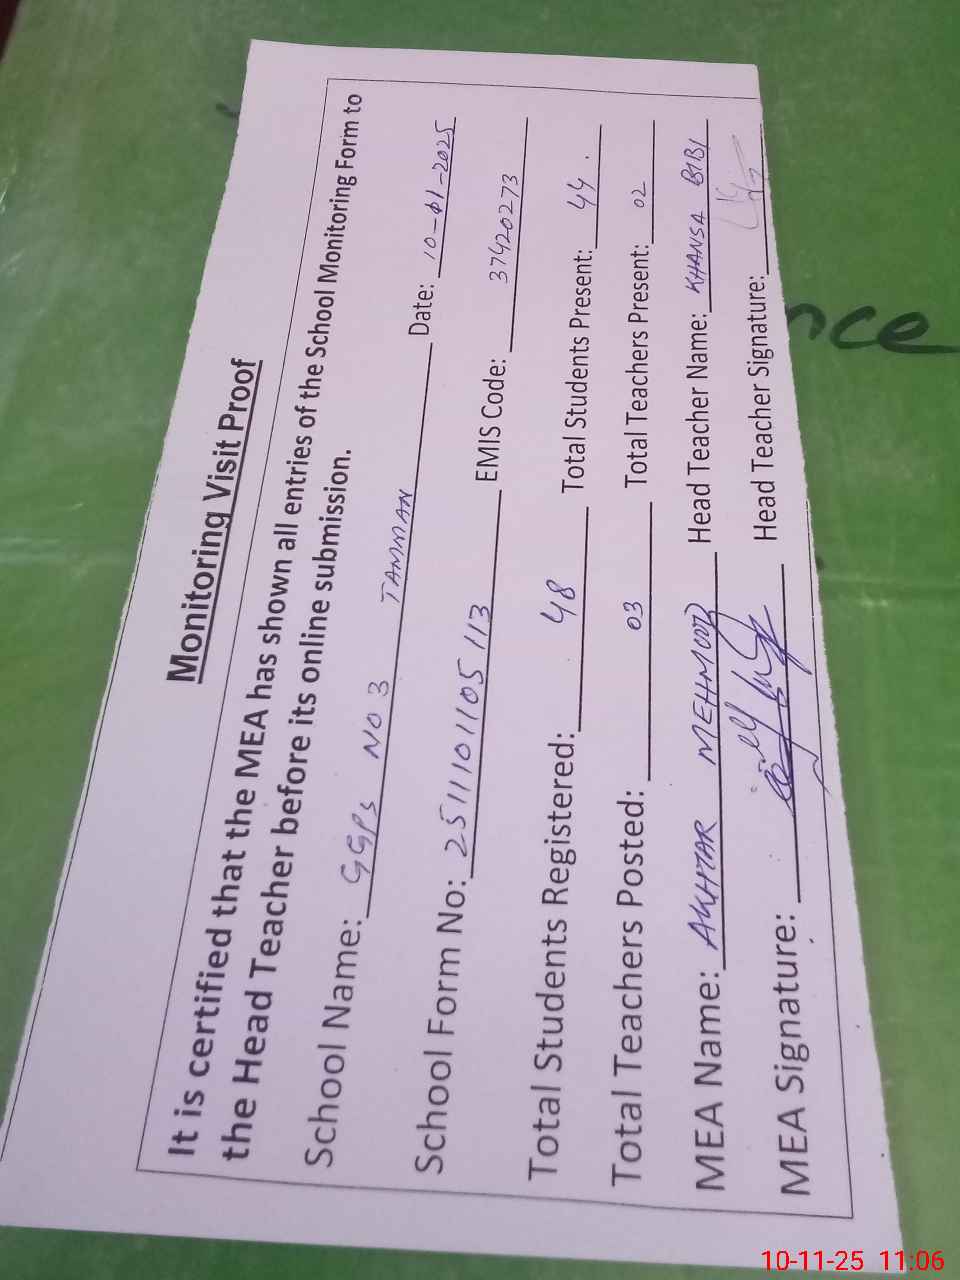 Monitoring Visit Proof
It is certified that the MEA has shown all entries of the School Monitoring Form to
the Head Teacher before its online submission.
School Name: GGPS NO 3 TAMMAN Date: 10-01-2025
School Form No: 251110110 5 113 EMIS Code: 37420273
Total Students Registered: 48 Total Students Present: 44.
Total Teachers Posted: 03 Total Teachers Present: 02
MEA Name: AKHTAR MEHMOOD Head Teacher Name: KHANSA BIBI
MEA Signature: Head Teacher Signature:
nce
10-11-25 11:06